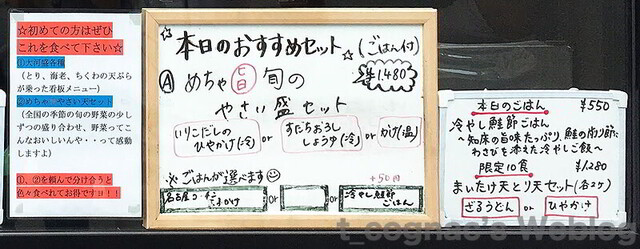 ☆初めての方はぜひ
これを食べて下さい☆
①大河盛各種
(とり、海老、ちくわの天ぷら
が乗った看板メニュー)
(全国の季節の旬の野菜の少し
ずつの盛り合わせ、野菜ってこ
んなおいしいんや・・って感動
しますよ)
①、②を頼んで分け合うと
色々食べれてお得ですヨ!!
☆本日のおすすめセット☆
(ごはん付)
Ⓐ めちゃ旬の
¥1,480
やさい盛セット
いりこだしの
ひやかけ(冷)
or
すだちおろし
しょうゆ(冷)
or
かけ(温)
※ごはんが選べます
+50円
or
or
冷やし鮭節
ごはん
本日のごはん ¥550
冷やし鮭節ごはん
〜知床の旨味たっぷり、鮭の削り節に
わさびを添えた冷やしご飯〜
限定10食 ¥1,280
まいたけ天とり天セット(各2ヶ)
ざるうどん or ひやかけ
t_cognac's Weblog